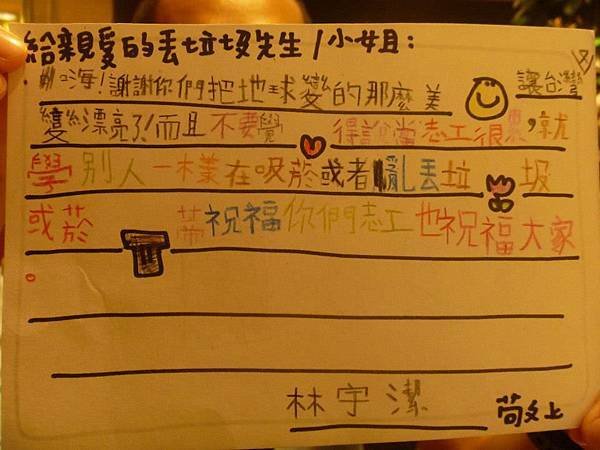 給親愛的丟垃圾先生/小姐:
嗨!謝謝你們把地球變的那麼美 讓台灣
變漂亮了!而且不要覺 得當志工很累,就
學別人一樣在吸菸或者亂丟垃 圾
或菸 蒂祝福你們志工也祝福大家
。
林宇潔 敬上